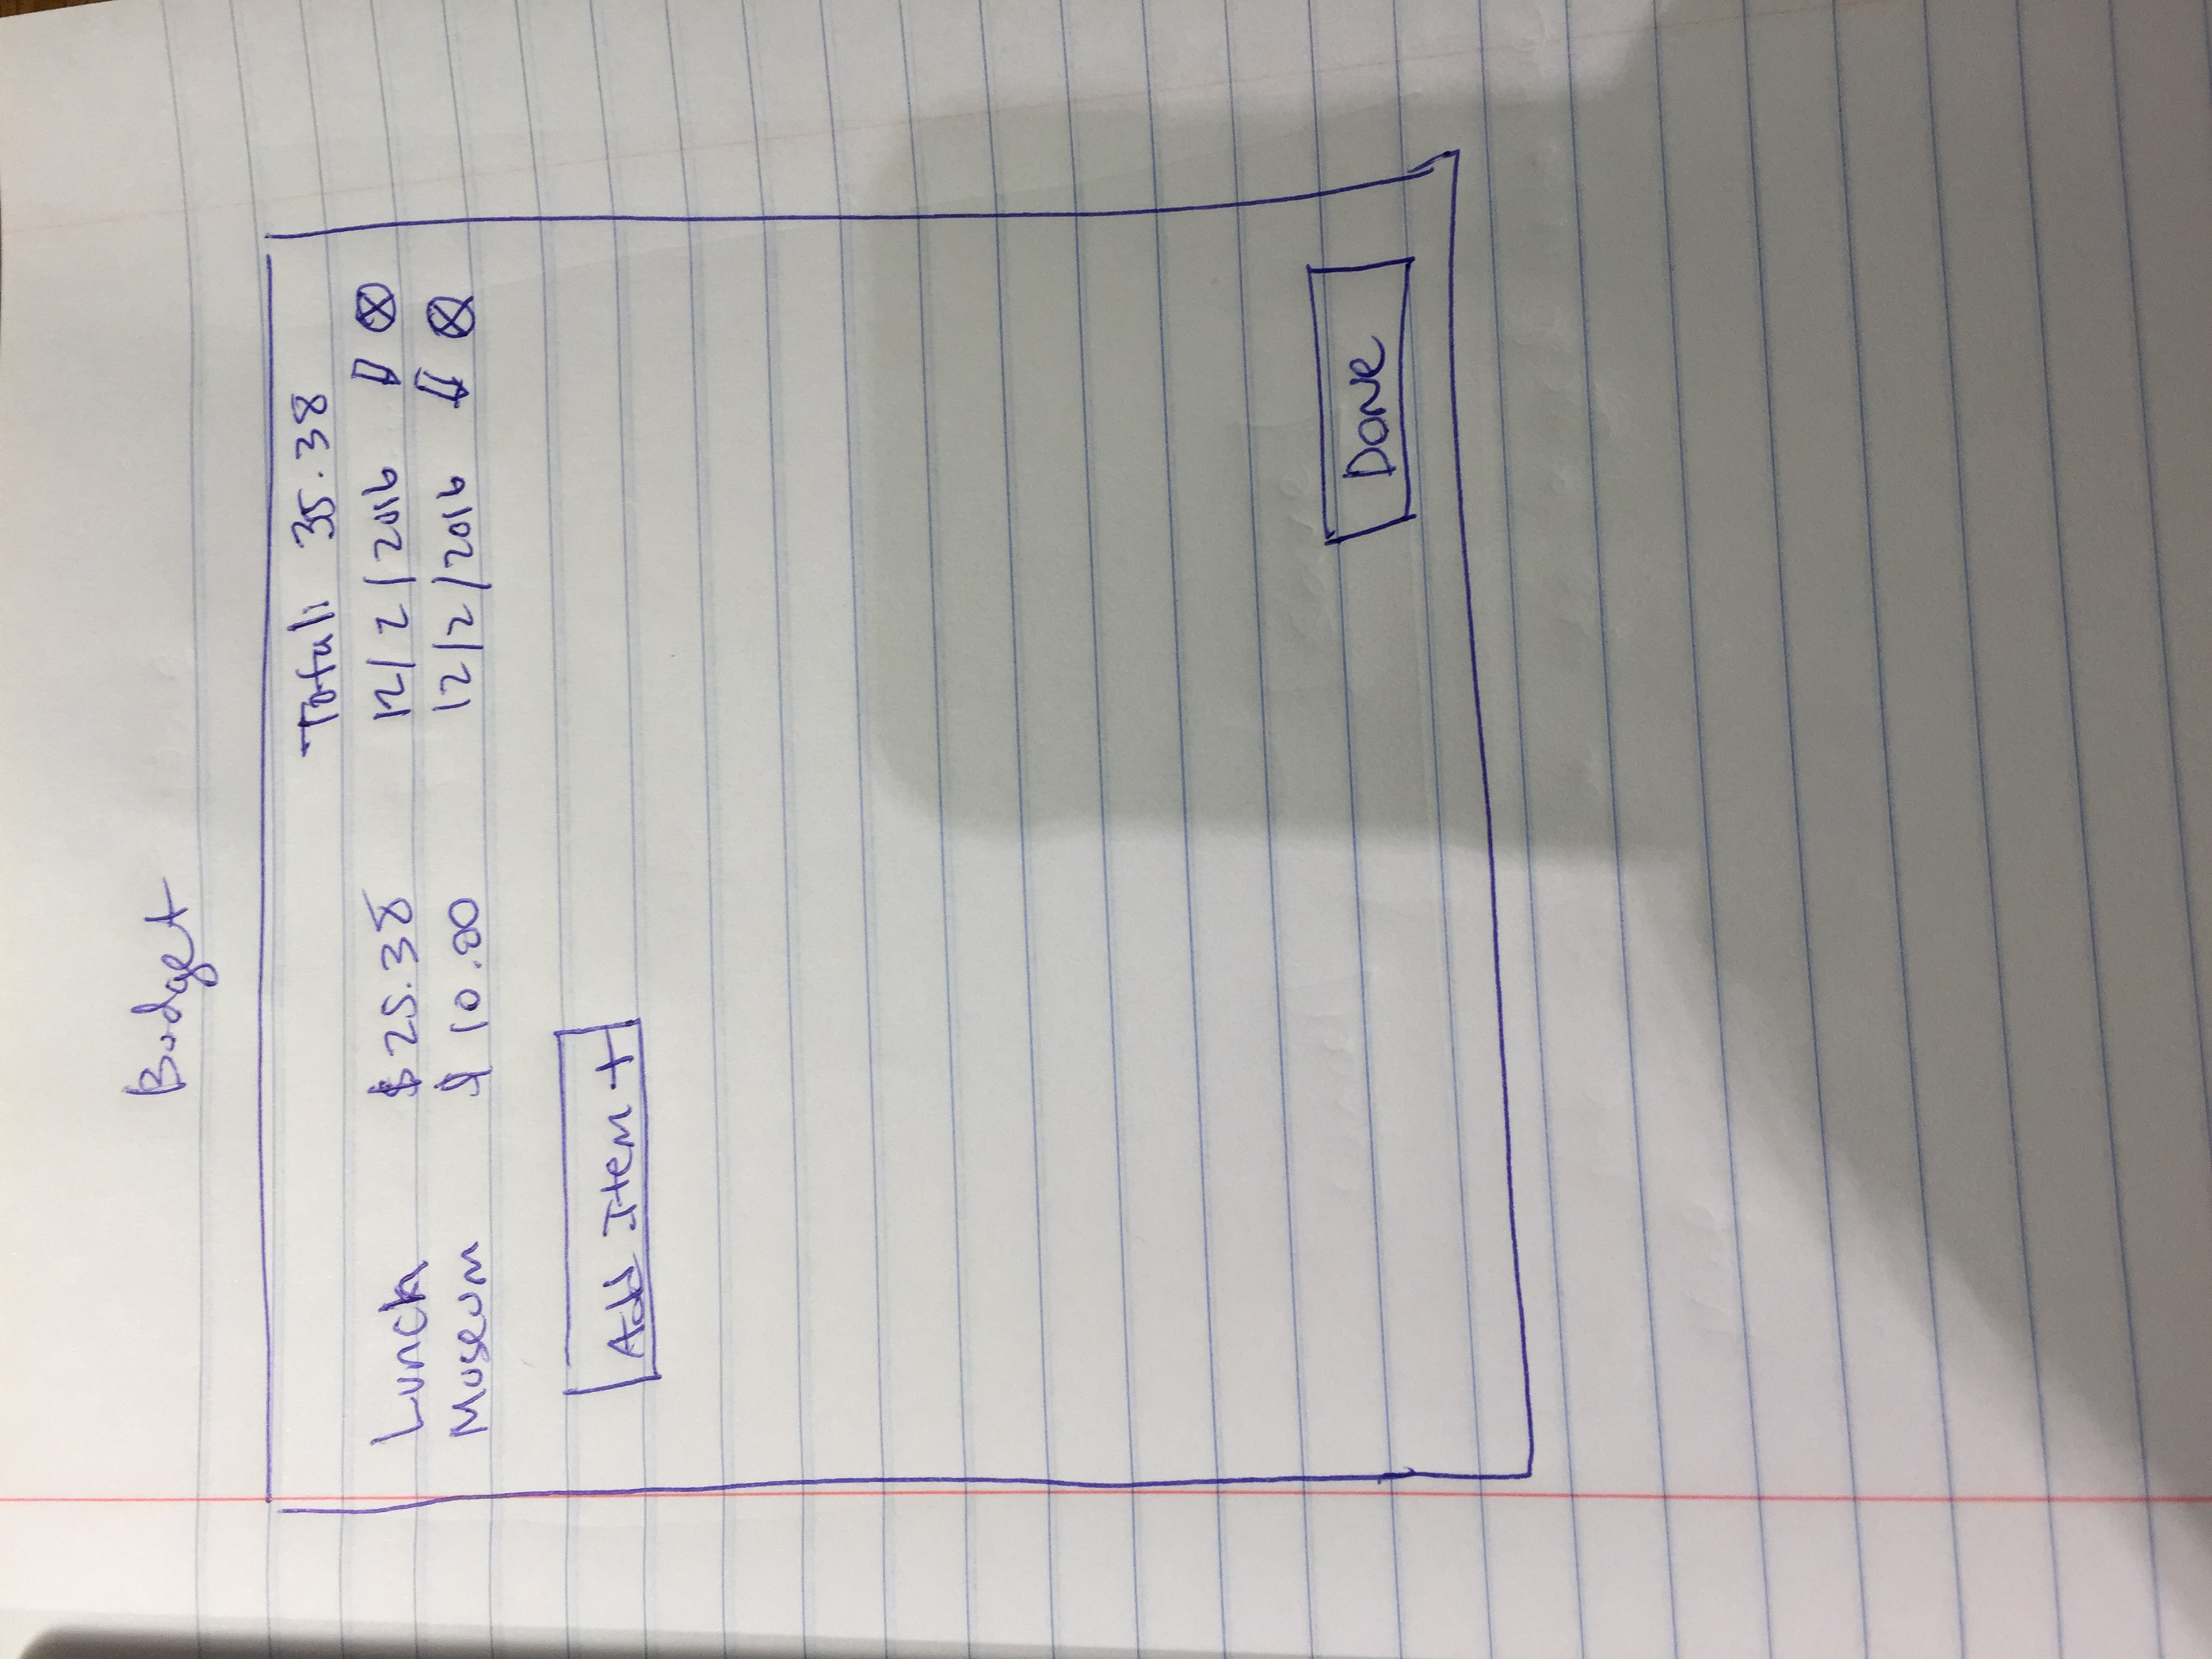 Budget
Total: 35.38
Lunch $25.38 12/2/2016
Museum $10.00 12/2/2016
Add Item +
DONE